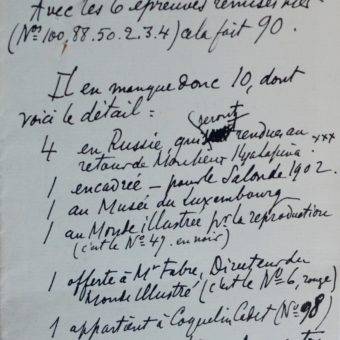 Avec les 6 épreuves remises
(Nos 100, 88. 50. 2. 3. 4) cela fait 90.
Il en manque donc 10, dont
voici le détail :
4 en Russie, qui seront rendues au xxx
retour de Monsieur
1 encadrée – pour le Salon de 1902.
1 au Musée du Luxembourg
1 au Monde illustré pr la reproduction
(c'est le No 49. en noir)
1 offerte à Mr Fabre, Directeur du
Monde illustré (c'est le No 6, rouge)
1 appartient à Coquelin Cadet (No 98)